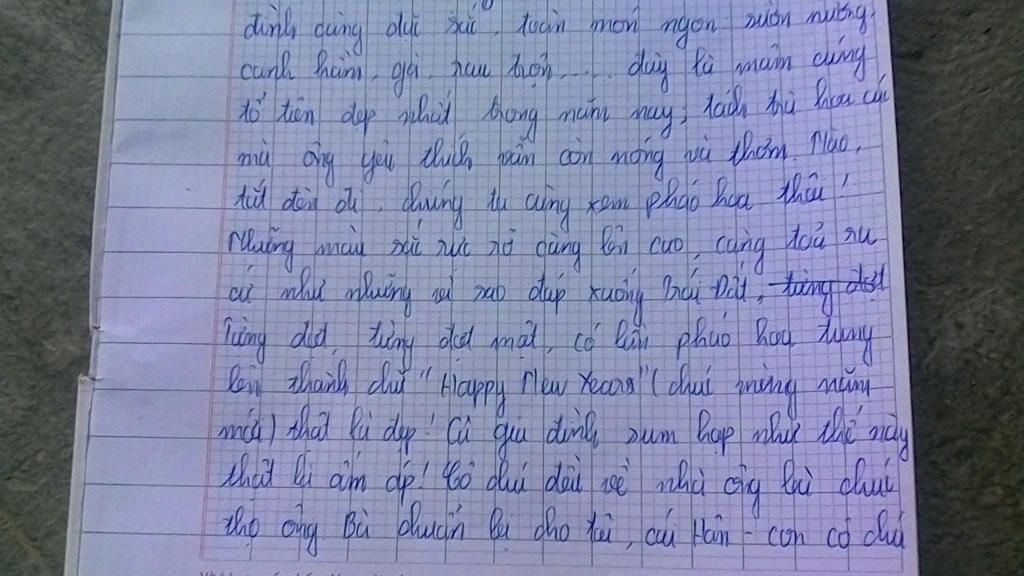 đình cùng dự xúc, toàn món ngon sườn nướng,
canh hầm, gà, rau trộn,.... đây là mâm cúng
tổ tiên đẹp nhất trong năm nay; tách trà hoa cúc
mà ông yêu thích vẫn còn nóng và thơm. Nào,
tắt đèn đi, chúng ta cùng xem pháo hoa thôi!
Những màu sắc rực rỡ càng lên cao, càng toả ra
cứ như những vì sao đáp xuống Trái Đất, từng đợt
Từng đợt, từng đợt một, có lần pháo hoa tung
lên thành chữ "Happy New Years" (chúc mừng năm
mới) thật là đẹp! Cả gia đình sum họp như thế này
thật là ấm áp! Cô chú đều về nhà ông bà chúc
thọ ông Bà chuẩn bị cho tôi, cái Hân - con cô chú